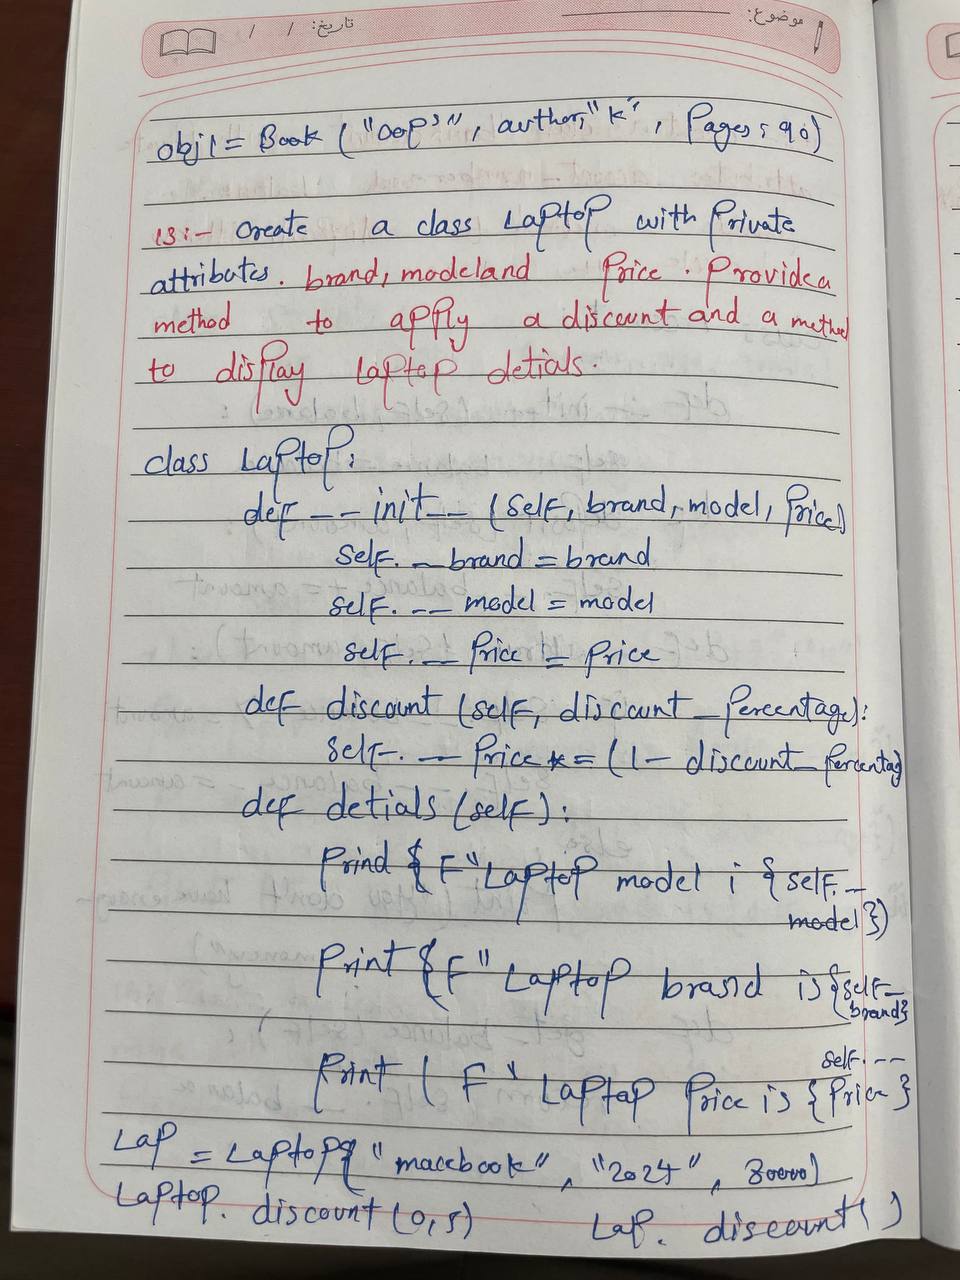 موضوع:
تاریخ: / /
obj1 = Book ("OOP's", author,"k", Pages, 90)
13:- create a class Laptop with Private
attributes. brand, model and Price. Provide a
method to apply a discount and a method
to display Laptop detials.
class Laptop:
def __init__ (self, brand, model, Price)
self.__brand = brand
self.__model = model
self.__Price = Price
def discount (self, discount_Percentage):
self.__Price *= (1 - discount_Percentag
def detials (self):
Prind {F"Laptop model i {self.__
model})
Print {F" Laptop brand is {self__
brand}
Print ( F" Laptap Price is {self.__Price}
Lap = Laptop{ "macebook", "2024", 80000)
Laptop. discount (0,5) Lap. discount()